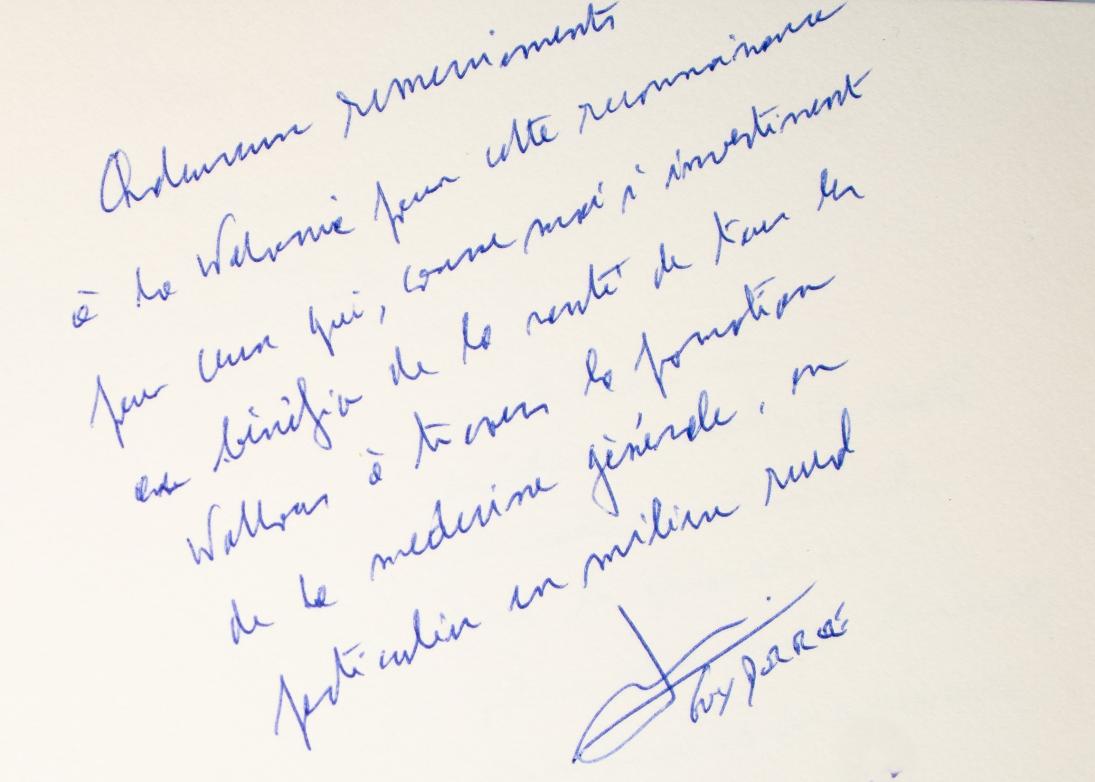 Chaleureux remerciements
à la Wallonie pour cette reconnaissance
pour ceux qui, comme moi s'investissent
au bénéfice de la santé de tous les
Wallons à travers la formation
de la médecine générale, en
particulier en milieu rural
Guy